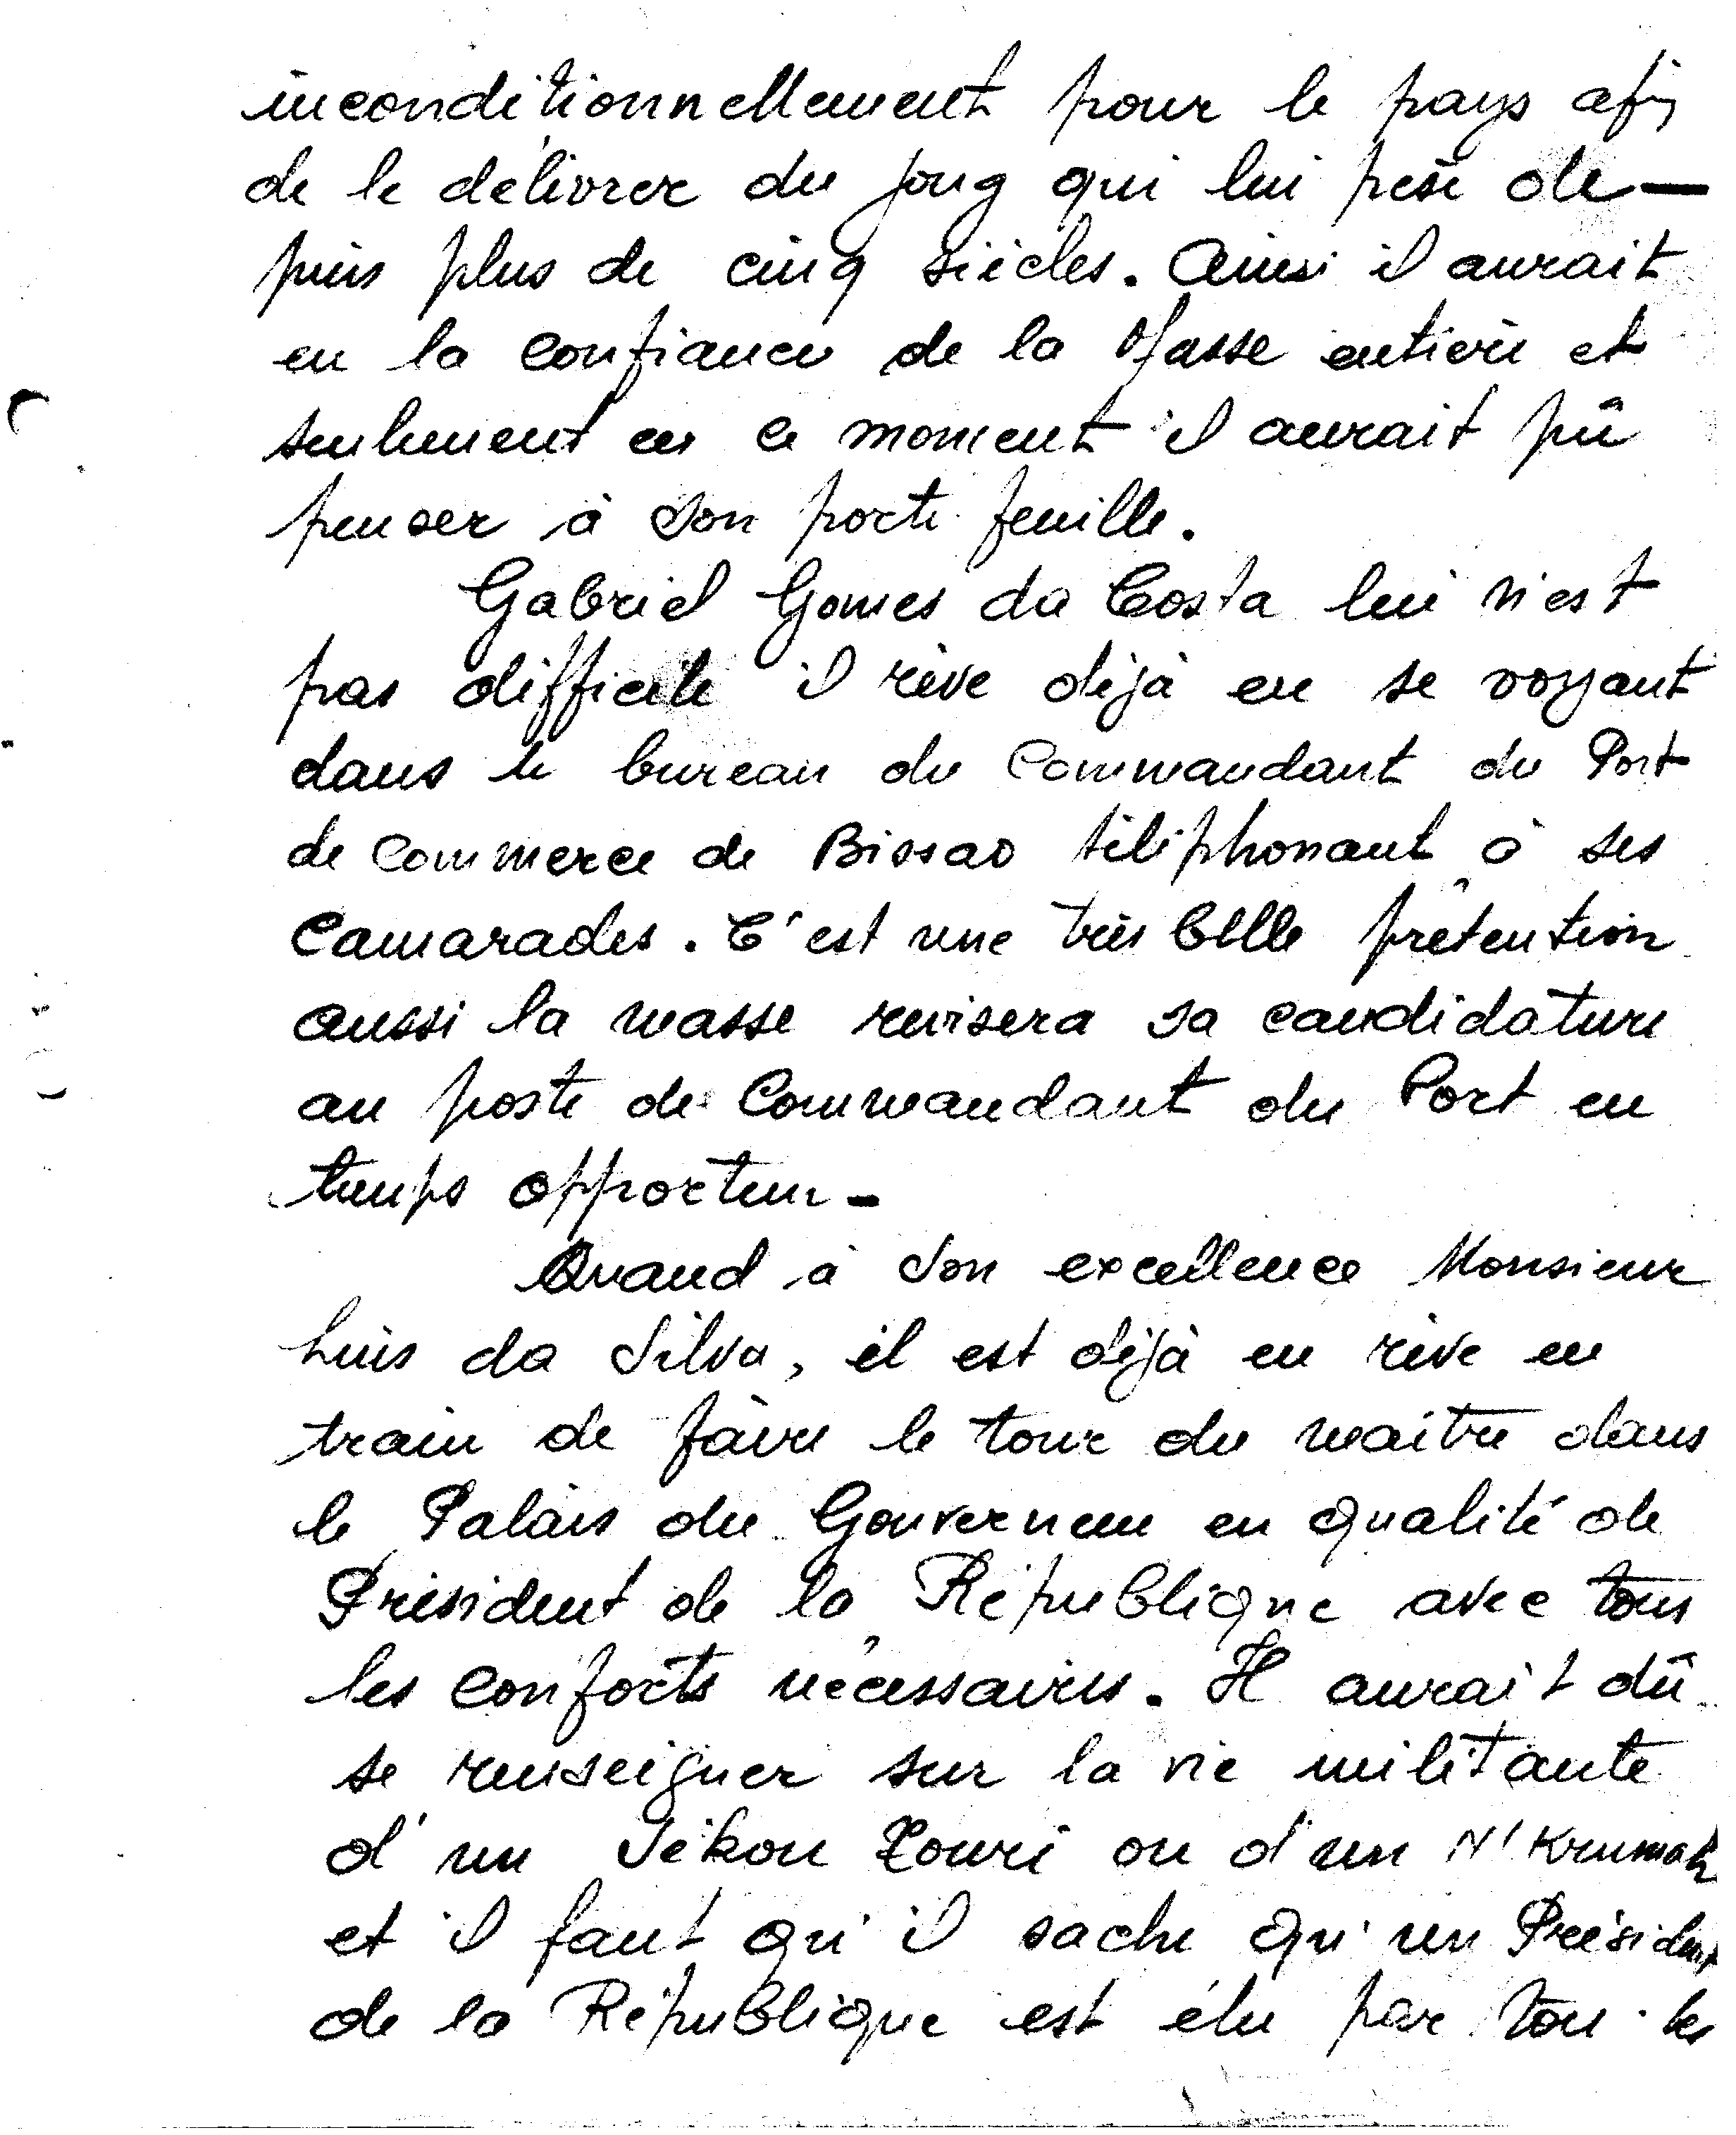 inconditionnellement pour le pays afin
de le délivrer du joug qui lui pèse de-
puis plus de cinq siècles. Ainsi il aurait
eu la confiance de la Masse entière et
seulement en ce moment il aurait pû
penser à son porte feuille.
Gabriel Gomes da Costa lui n'est
pas difficile il rêve déjà en se voyant
dans le bureau du Commandant du Port
de Commerce de Bissao téléphonant à ses
Camarades. C'est une très belle prétention
aussi la masse revisera sa candidature
au poste de Commandant du Port en
temps opportun-
Quand à son excellence Monsieur
Luis da Silva, il est déjà en rêve en
train de faire le tour du maître dans
le Palais du Gouverneur en qualité de
Président de la République avec tous
les conforts nécessaires. Il aurait dû
se renseigner sur la vie militante
d'un Sékou Touré ou d'un N'Krumah
et il faut qu'il sache qu'un Président
de la République est élu par tou les